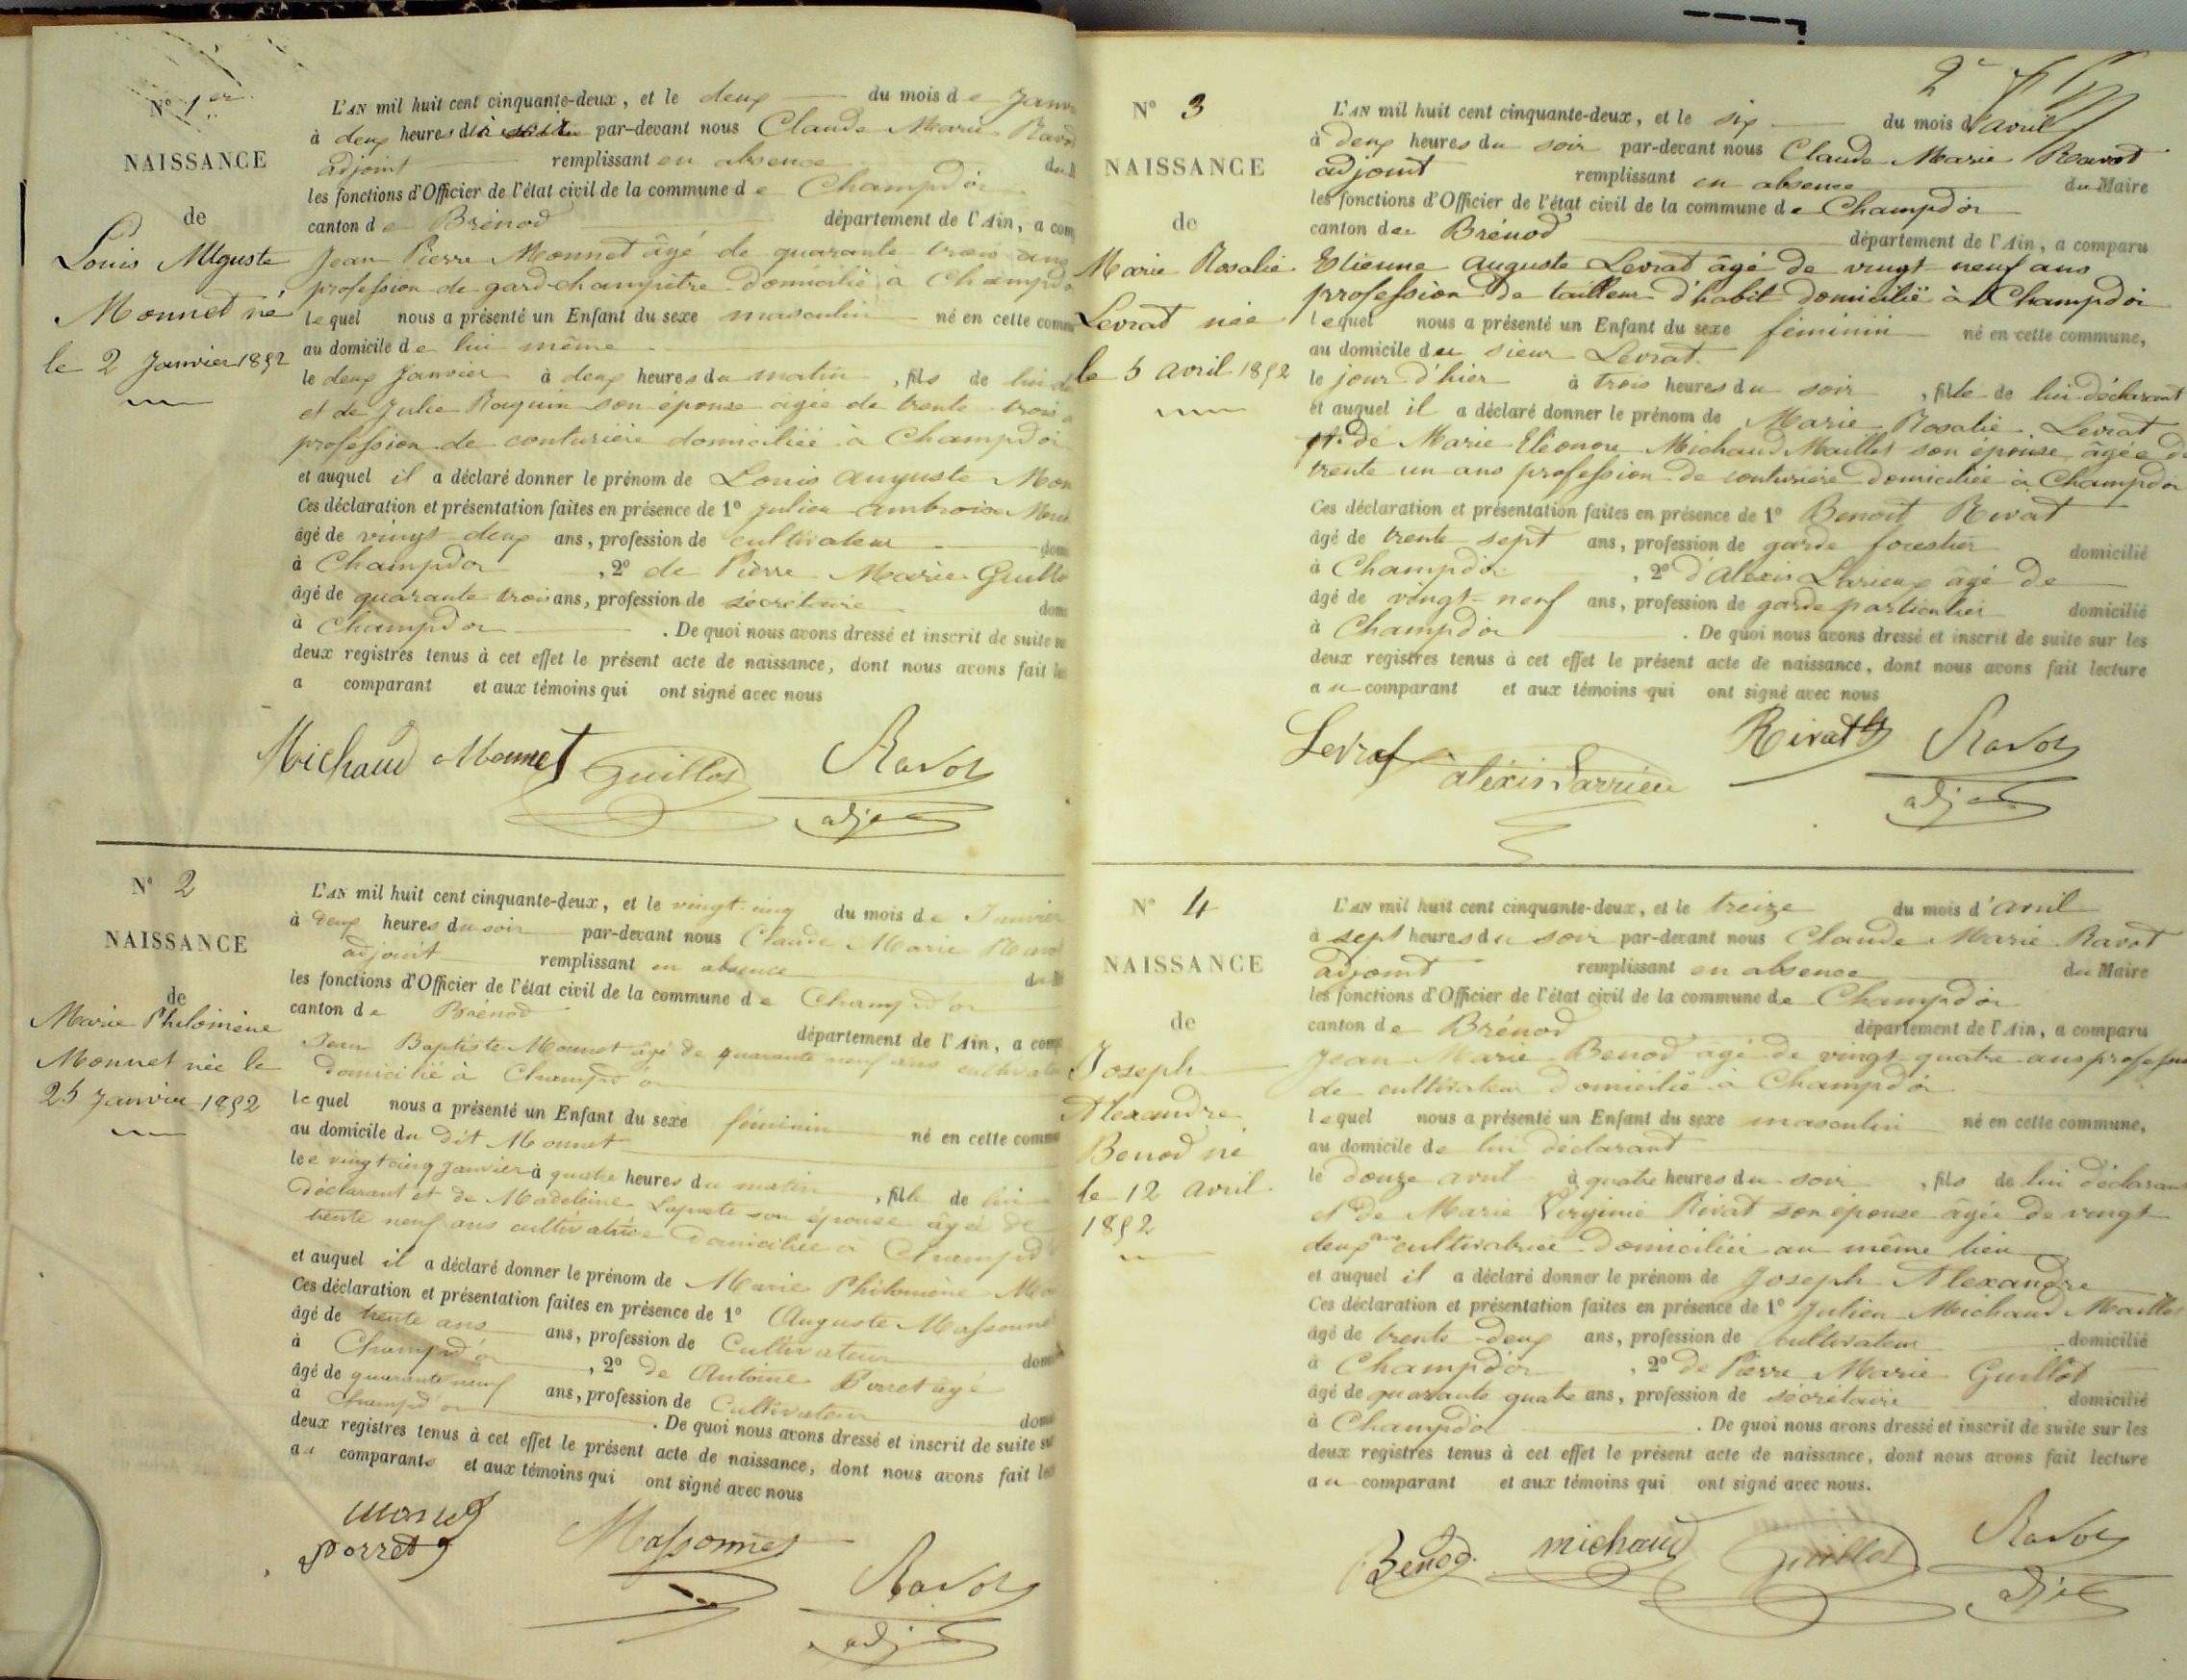 N° 1er
NAISSANCE
de
Louis Auguste
Monnet né
le 2 Janvier 1852
L'AN mil huit cent cinquante-deux, et le deux du mois de Janv
à deux heures du soir par-devant nous Claude Marie Ravo
adjoint remplissant en absence du M
les fonctions d'Officier de l'état civil de la commune de Champdor
canton de Brénod département de l'Ain, a com
Jean Pierre Monnet âgé de quarante trois ans
profession de gard-champêtre domicilié à Champdo
lequel nous a présenté un Enfant du sexe masculin né en cette comm
au domicile de lui même
le deux Janvier à deux heures du matin, fils de lui
et de Julie Raquin son épouse âgée de trente trois
profession de couturière domiciliée à Champdor
et auquel il a déclaré donner le prénom de Louis Auguste Mon
Ces déclaration et présentation faites en présence de 1° Julien Ambroise
âgé de vingt-deux ans, profession de cultivateur dom
à Champdor, 2° de Pierre Marie Guillo
âgé de quarante trois ans, profession de sécrétaire dom
à Champdor. De quoi nous avons dressé et inscrit de suite su
deux registres tenus à cet effet le présent acte de naissance, dont nous avons fait le
a comparant et aux témoins qui ont signé avec nous
Michaud Monnet Guillot Ravot
adj
N° 2
NAISSANCE
de
Marie Philomène
Monnet née le
25 Janvier 1852
L'AN mil huit cent cinquante-deux, et le vingt cinq du mois de Janvier
à deux heures du soir par-devant nous Claude Marie Rav
adjoint remplissant en absence du M
les fonctions d'Officier de l'état civil de la commune de Champd'or
canton de Brénod
département de l'Ain, a comp
Jean Baptiste Monnet âgé de quarante neuf ans cultivate
domicilié à Champd'or
lequel nous a présenté un Enfant du sexe féminin né en cette comm
au domicile du dit Monnet
le vingt cinq Janvier à quatre heures du matin, fille de lui
déclarant et de Madeleine son épouse âgée de
trente neuf ans cultivatrice domiciliée à Champd
et auquel il a déclaré donner le prénom de Marie Philomène Mo
Ces déclaration et présentation faites en présence de 1° Auguste Massonne
âgé de trente ans ans, profession de Cultivateur dom
à Champd'or, 2° de Antoine Porret âgé
âgé de quarante neuf ans, profession de Cultivateur dom
à Champd'or. De quoi nous avons dressé et inscrit de suite su
deux registres tenus à cet effet le présent acte de naissance, dont nous avons fait le
au comparants et aux témoins qui ont signé avec nous
Porret Massonnet Ravot
adj
2e
N° 3
NAISSANCE
de
Marie Rosalie
Levrat née
le 5 avril 1852
L'AN mil huit cent cinquante-deux, et le six du mois d'avril
à deux heures du soir par-devant nous Claude Marie Ravot
adjoint remplissant en absence du Maire
les fonctions d'Officier de l'état civil de la commune de Champdor
canton de Brénod département de l'Ain, a comparu
Etienne Auguste Levrat âgé de vingt neuf ans
profession de tailleur d'habit domicilié à Champdor
lequel nous a présenté un Enfant du sexe féminin né en cette commune,
au domicile du sieur Levrat
le jour d'hier à trois heures du soir, fille de lui déclarant
et auquel il a déclaré donner le prénom de Marie Rosalie Levrat
et de Marie Eléonore Michaud Maillet son épouse âgée de
trente un ans profession de couturière domiciliée à Champdor
Ces déclaration et présentation faites en présence de 1° Benoit Rivat
âgé de trente sept ans, profession de garde forestier domicilié
à Champdor, 2° d'Alexis Larieux âgé de
âgé de vingt-neuf ans, profession de garde particulier domicilié
à Champdor. De quoi nous avons dressé et inscrit de suite sur les
deux registres tenus à cet effet le présent acte de naissance, dont nous avons fait lecture
au comparant et aux témoins qui ont signé avec nous
Levrat alexis Larrieu Rivat Ravot
adj
N° 4
NAISSANCE
de
Joseph
Alexandre
Benod né
le 12 avril
1852
L'AN mil huit cent cinquante-deux, et le treize du mois d'avril
à sept heures du soir par-devant nous Claude Marie Ravot
adjoint remplissant en absence du Maire
les fonctions d'Officier de l'état civil de la commune de Champdor
canton de Brénod département de l'Ain, a comparu
Jean Marie Benod âgé de vingt quatre ans profession
de cultivateur domicilié à Champdor
lequel nous a présenté un Enfant du sexe masculin né en cette commune,
au domicile de lui déclarant
le douze avril à quatre heures du soir, fils de lui déclarant
et de Marie Virginie Rivat son épouse âgée de vingt
deux ans cultivatrice domiciliée au même lieu
et auquel il a déclaré donner le prénom de Joseph Alexandre
Ces déclaration et présentation faites en présence de 1° Julien Michaud Maillet
âgé de trente-deux ans, profession de cultivateur domicilié
à Champdor, 2° de Pierre Marie Guillot
âgé de quarante quatre ans, profession de sécrétaire domicilié
à Champdor. De quoi nous avons dressé et inscrit de suite sur les
deux registres tenus à cet effet le présent acte de naissance, dont nous avons fait lecture
au comparant et aux témoins qui ont signé avec nous.
Benod michaud Guillot Ravot
adj